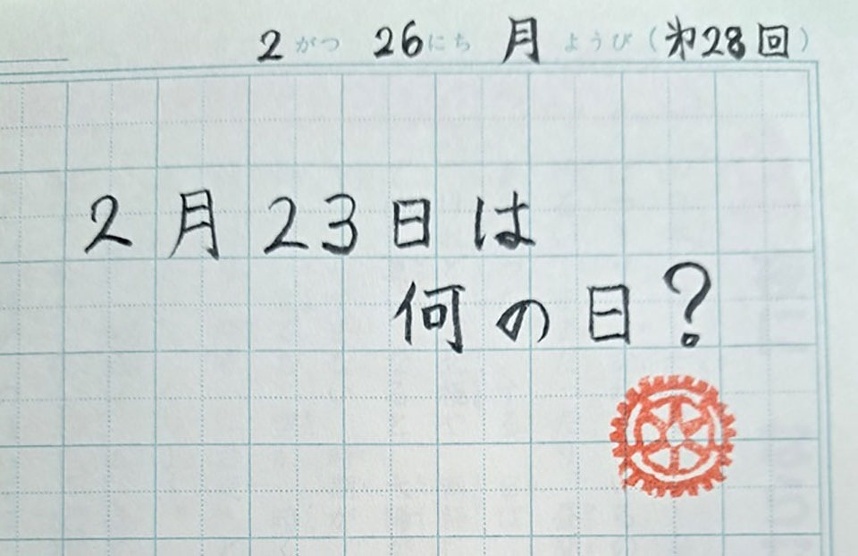 2がつ 26にち 月ようび(第28回)
2月23日は
何の日?